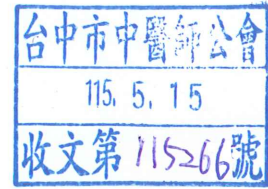 台中市中醫師公會
115. 5. 15
收文第115266號